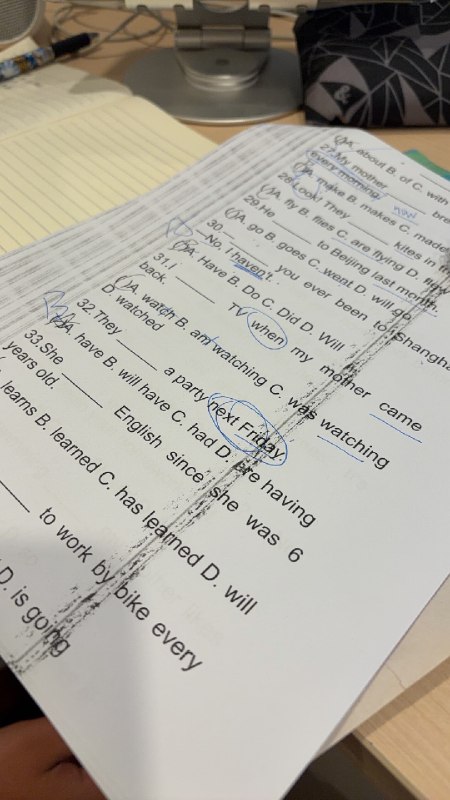 ()A. about B. of C. with
27.My mother ____ bre
every morning.
()A. make B. makes C. made
28.Look! They ____ kites in th
()A. fly B. flies C. are flying D. flew
29.He ____ to Beijing last month.
()A. go B. goes C. went D. will go
30.— ____ you ever been to Shangha
—No, I haven't.
()A. Have B. Do C. Did D. Will
31.I ____ TV when my mother came
back.
()A. watch B. am watching C. was watching
D watched
32.They ____ a party next Friday.
()A. have B. will have C. had D. are having
33.She ____ English since she was 6
years old.
learns B. learned C. has learned D. will
____ to work by bike every
D. is going